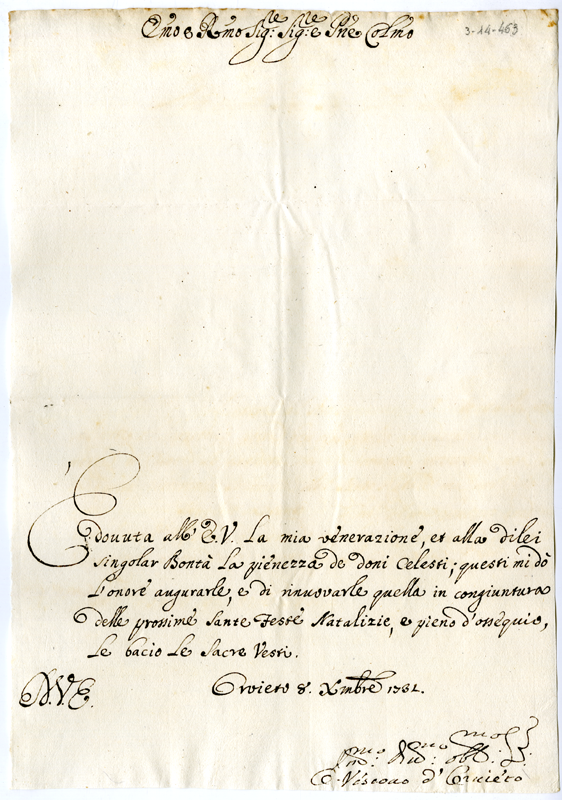 Emo e Rmo Sig:re Sig:re Pne Colmo
3-14-463
E dovuta all' E.V. La mia venerazione, et alla dilei
singolar Bontà La pienezza de doni Celesti; questi mi dò
L'onore augurarle, e di rinuovarle quella in congiuntura
delle prossime Sante Feste Natalizie, e pieno d'ossequio,
Le bacio Le Sacre Vesti.
Orvieto 8. Xmbre 1731.
D.V.E.
Vescovo d'Orvieto